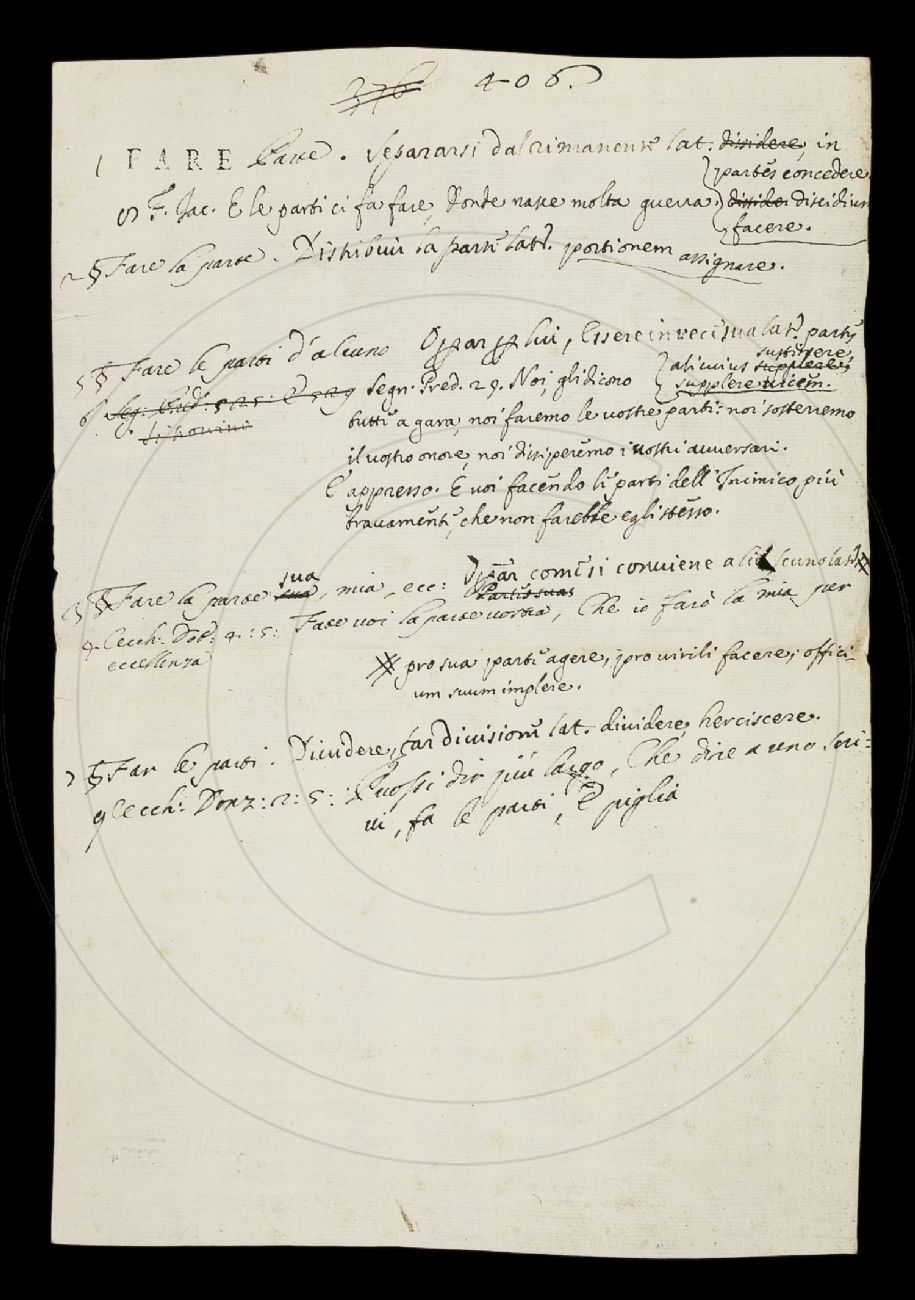 376 406.
1 FARE Parte. Separarsi dal rimanente lat. dissidere, in
partes concedere
8 F. Jac. E le parti ci fa fare, donde nasce molta guerra. discidium
facere.
2 § Fare la parte. Distribuir la parte lat. portionem assignare.
5 § Fare le parti d'alcuno Oprar per lui, Essere in vece sua lat. partes
sustinere,
alicuius supplere,
6 Seg. Pred. 525: E 529 Segn. Pred. 29. Noi, gli dicono supplere vicem.
di
tutti a gara, noi faremo le vostre parti: noi sosterremo
il vostro onore, noi dissiperemo i vostri avversari.
E appresso. E voi facendo le parti dell' Inimico più
bravamente, che non farebbe egli stesso.
3 § Fare la parte sua sua, mia, ecc: Oprar come si conviene a lat.
Partes suas
4 Cecch: Dot: 4: 5: Fate voi la parte vostra, Che io farò la mia per
eccellenza
pro sua parte agere, pro virili facere, offici-
um suum implere.
7 § Far le parti. Dividere, far divisione lat. dividere, herciscere.
9 Cecch: Donz: 2: 5: Puossi dir più largo, Che dire a uno seri=
vi, fa le parti, E piglia